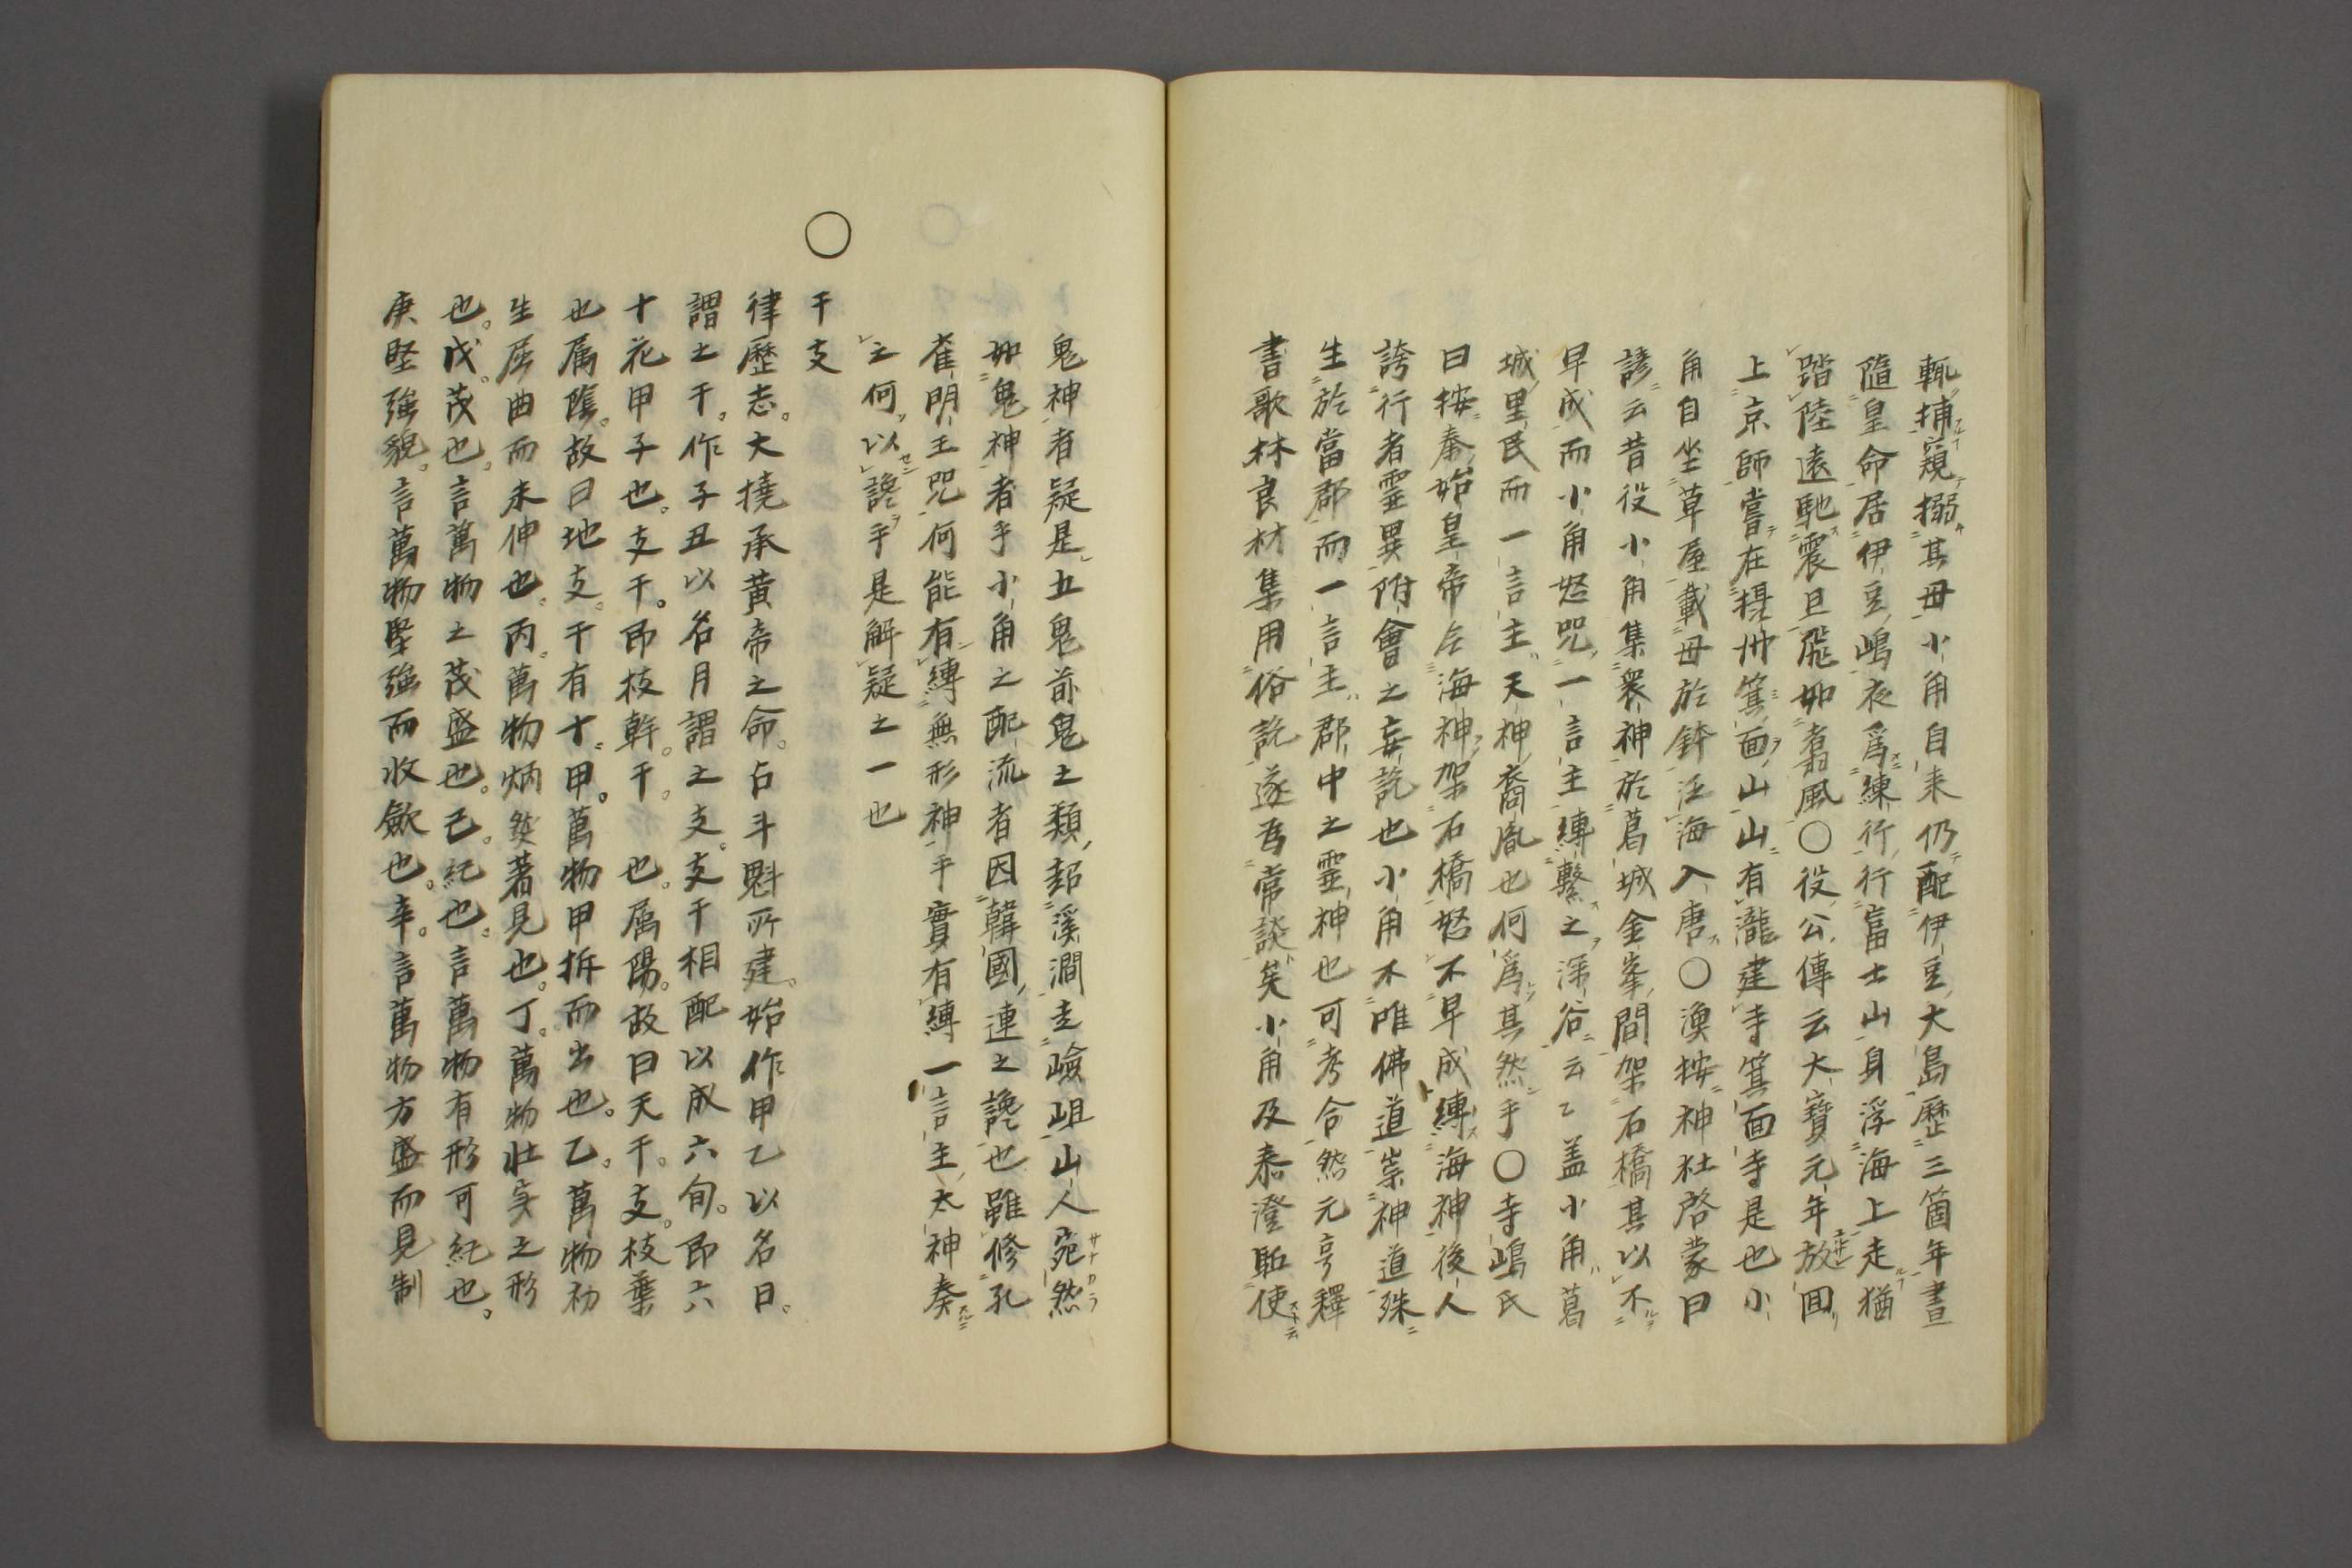 輙捕窺搦其毋小角自来仍配伊豆大島歴三箇年晝
隨皇命居伊豆嶋夜爲練行行富士山身浮海上走猶
踏陸遠馳震旦飛如翥風〇役公傳云大寶元年放囬
上京師嘗在摂州箕面山山有瀧建寺箕面寺是也小
角自坐草座載母於鉢泛海入唐〇渙按神社啓蒙曰
諺云昔役小角集衆神於葛城金峯間架石橋其以不
早成而小角怒咒一言主縛繫之深谷云々盖小角葛
城里民而一言主天神裔胤也何爲其然乎〇寺嶋氏
曰按秦始皇帝令海神架石橋怒不早成縛海神後人
誇行者靈異附會之妄説也小角不唯佛道崇神道殊
生於當郡而一言主郡中之靈神也可考合然元亨釋
書歌林良材集用俗説遂爲常談矣小角及泰澄駈使
鬼神者疑是五鬼前鬼之類超溪澗走嶮岨山人宛然
如鬼神者乎小角之配流者因韓國連之讒也雖修孔
雀明王咒何能有縛無形神乎實有縛一言主太神奏
之何以讒乎是解疑之一也
〇
干支
律歷志。大撓承黄帝之命。占斗魁所建。始作甲乙以名日。
謂之干。作子丑以名月謂之支。支干相配以成六旬。即六
十花甲子也。支干。即枝幹。干。也。属陽。故曰天干。支。枝葉
也属陰。故曰地支。干有十。甲。萬物甲拆而出也。乙。萬物初
生屈曲而未伸也。丙。萬物炳然著見也。丁。萬物壮实之形
也。戊。茂也。言萬物之茂盛也。己。紀也。言萬物有形可紀也。
庚堅強貌。言萬物堅強而收斂也。辛。言萬物方盛而見制